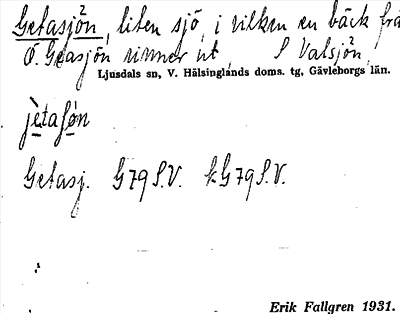 Getasjön, liten sjö, i vilken en bäck frå
Ö. Getasjön rinner ut, S Valsjön,
Ljusdals sn, V. Hälsinglands doms. tg, Gävleborgs län.
Getasj. G79S.V. kG79S.V.
Erik Fallgren 1931.